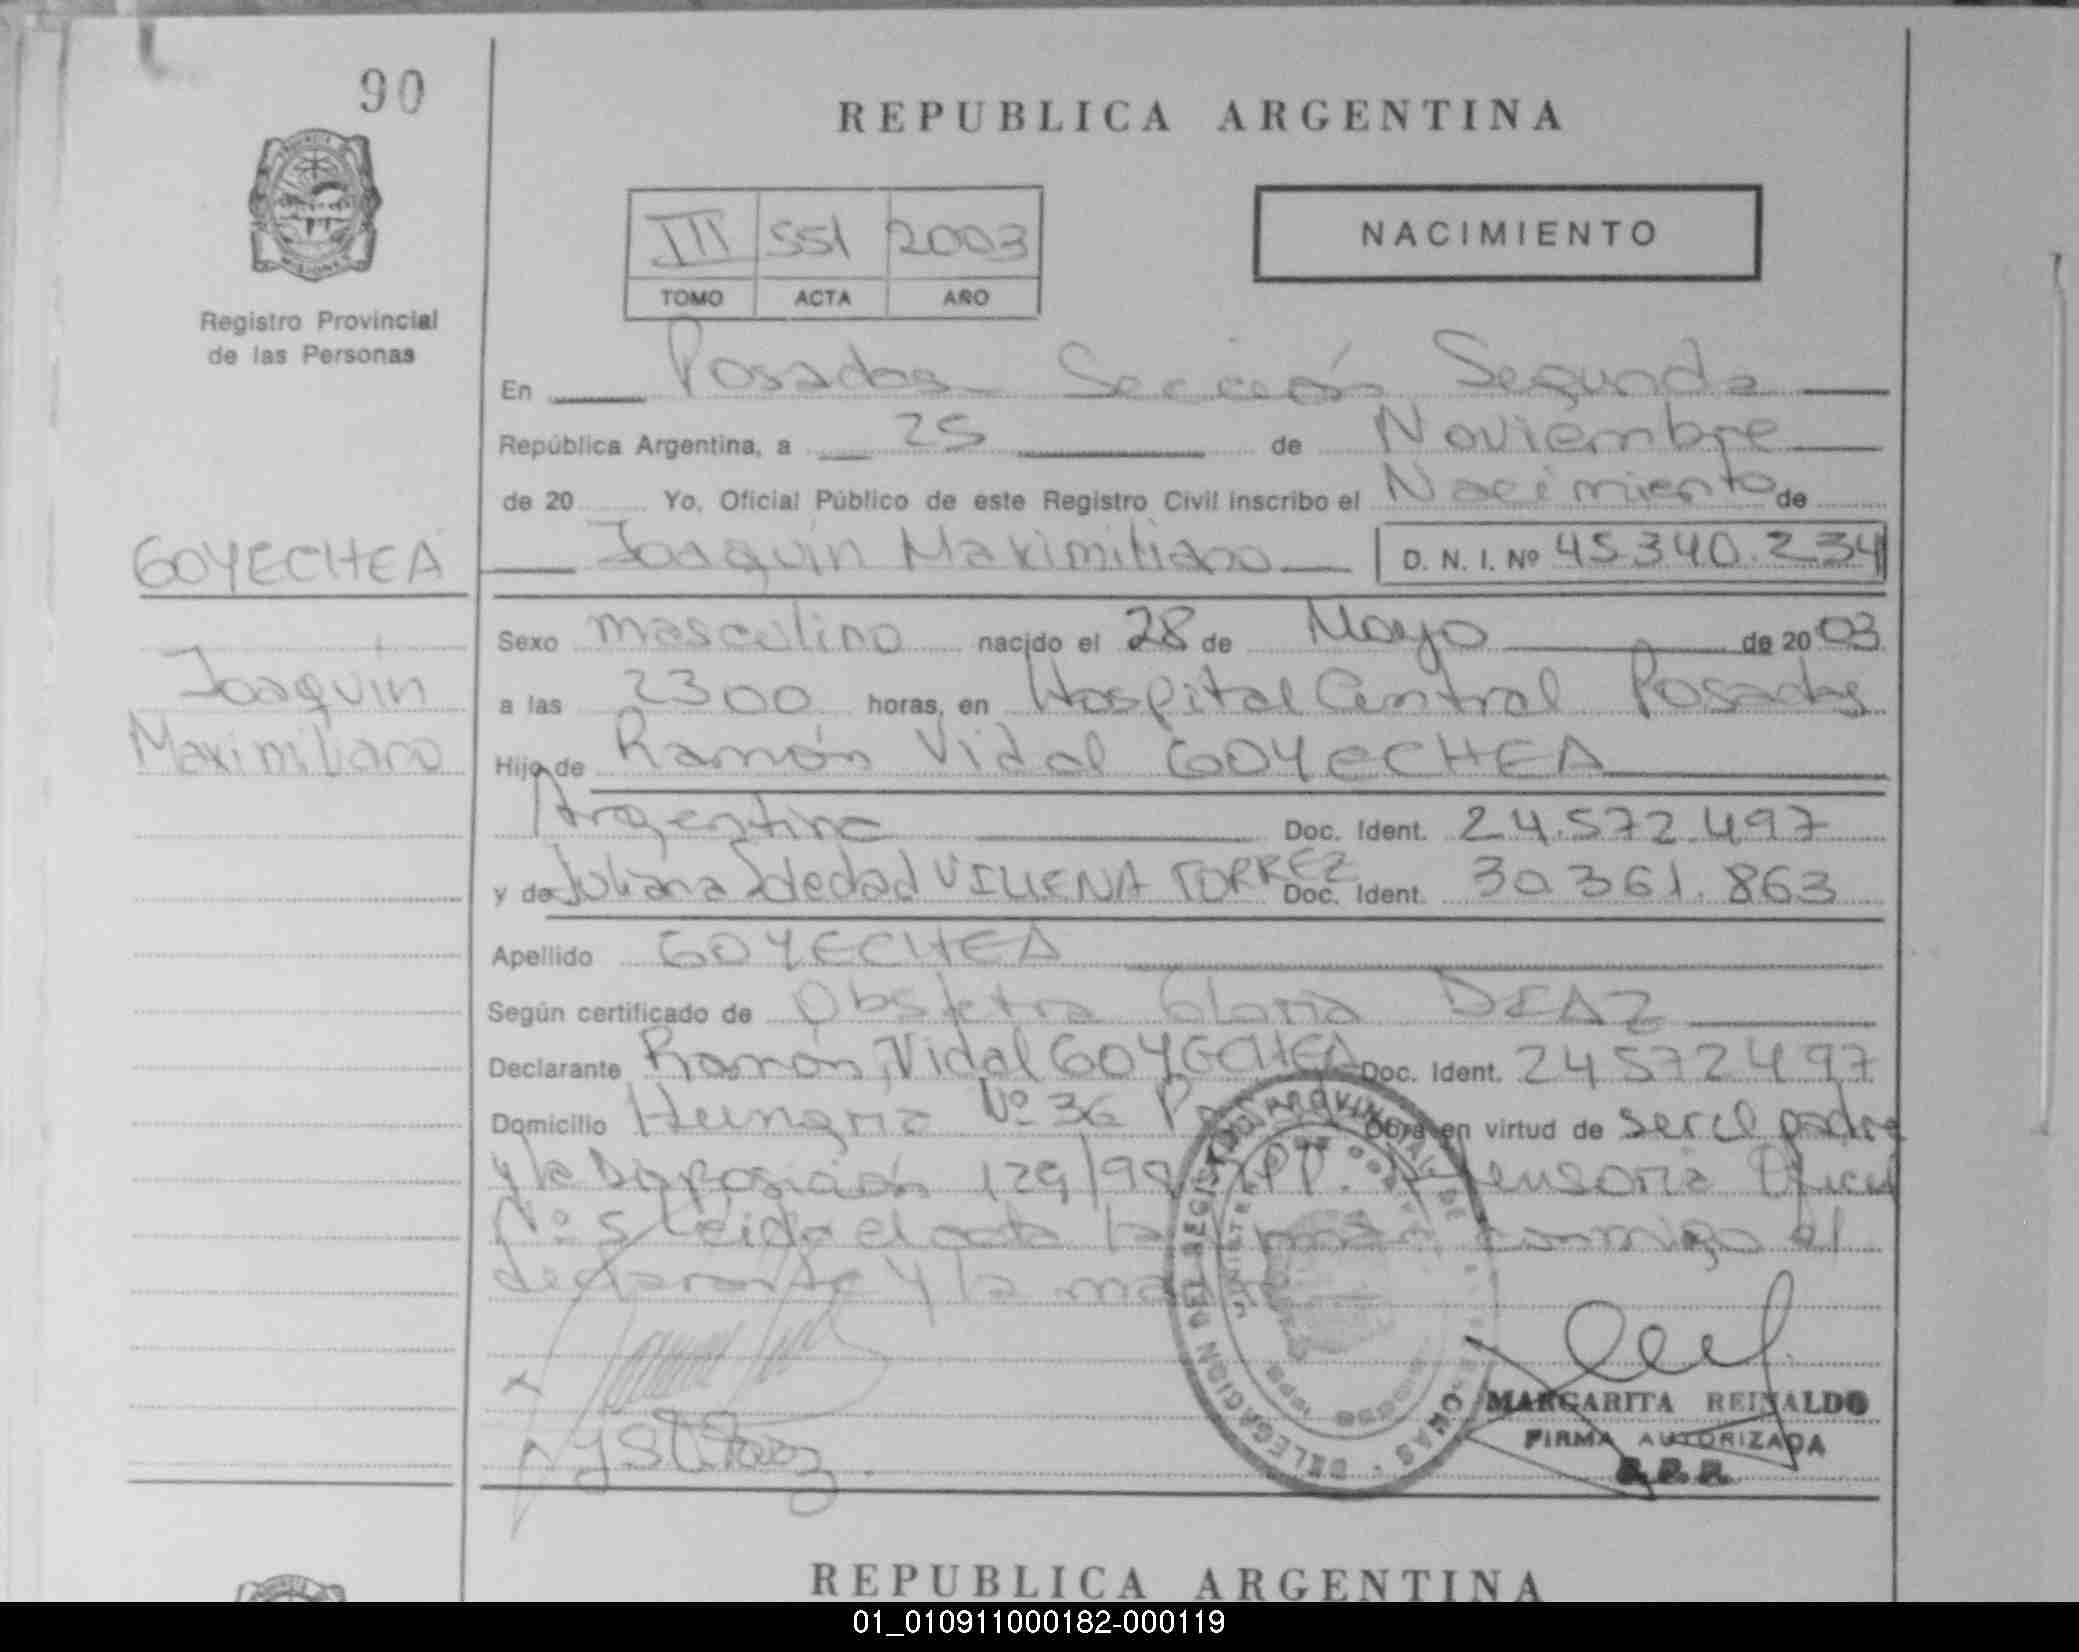 90
REPUBLICA ARGENTINA
III 551 2003
TOMO ACTA AÑO
NACIMIENTO
Registro Provincial
de las Personas
En Posadas Sección Segunda
República Argentina, a 25 de Noviembre
de 20 Yo, Oficial Público de este Registro Civil inscribo el Nacimiento de
GOYECHEA
Joaquín Maximiliano D. N. I. Nº 45.340.234
Sexo masculino nacido el 28 de Mayo de 2003
Joaquín
a las 2300 horas, en Hospital Central Posadas
Maximiliano
Hijo de Ramón Vidal GOYECHEA
Argentina Doc. Ident. 24.572.497
y de Juliana Soledad VILLENA TORREZ Doc. Ident. 30.361.863
Apellido GOYECHEA
Según certificado de Obstetra Gloria DIAZ
Declarante Ramón Vidal GOYECHEA Doc. Ident. 24572497
Domicilio Hungria Nº 36 Obra en virtud de ser el padre
y la Disposición 129/99 Defensoria Oficial
Nº 5 Leida el acta la conmigo el
declarante y la madre
DELEGACION DEL REGISTRO PROVINCIAL DE
MARGARITA REINALDO
FIRMA AUTORIZADA
R. P. P.
REPUBLICA ARGENTINA
01_010911000182-000119